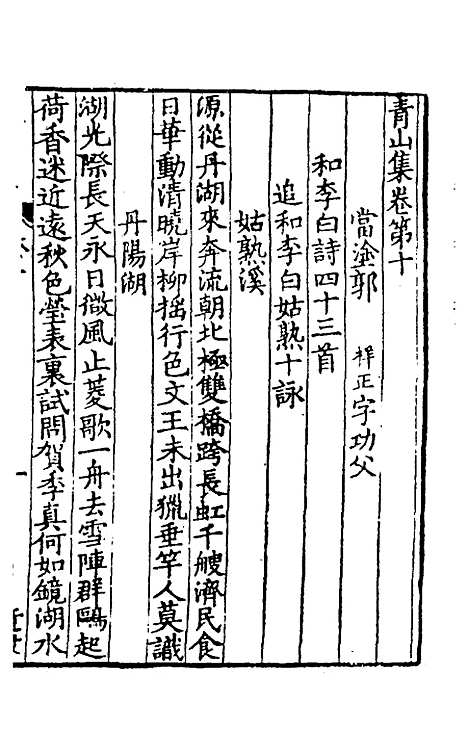 青山集卷第十
當塗郭 祥正字功父
和李白詩四十三首
追和李白姑熟十詠
姑熟溪
源從丹湖來奔流朝北極雙橋跨長虹千艘濟民食
日華動清曉岸柳揺行色文王未出獵垂竿人莫識
丹陽湖
湖光際長天永日微風止菱歌一舟去雪陣群鷗起
荷香迷近遠秋色瑩表裏試問賀季真何如鏡湖水